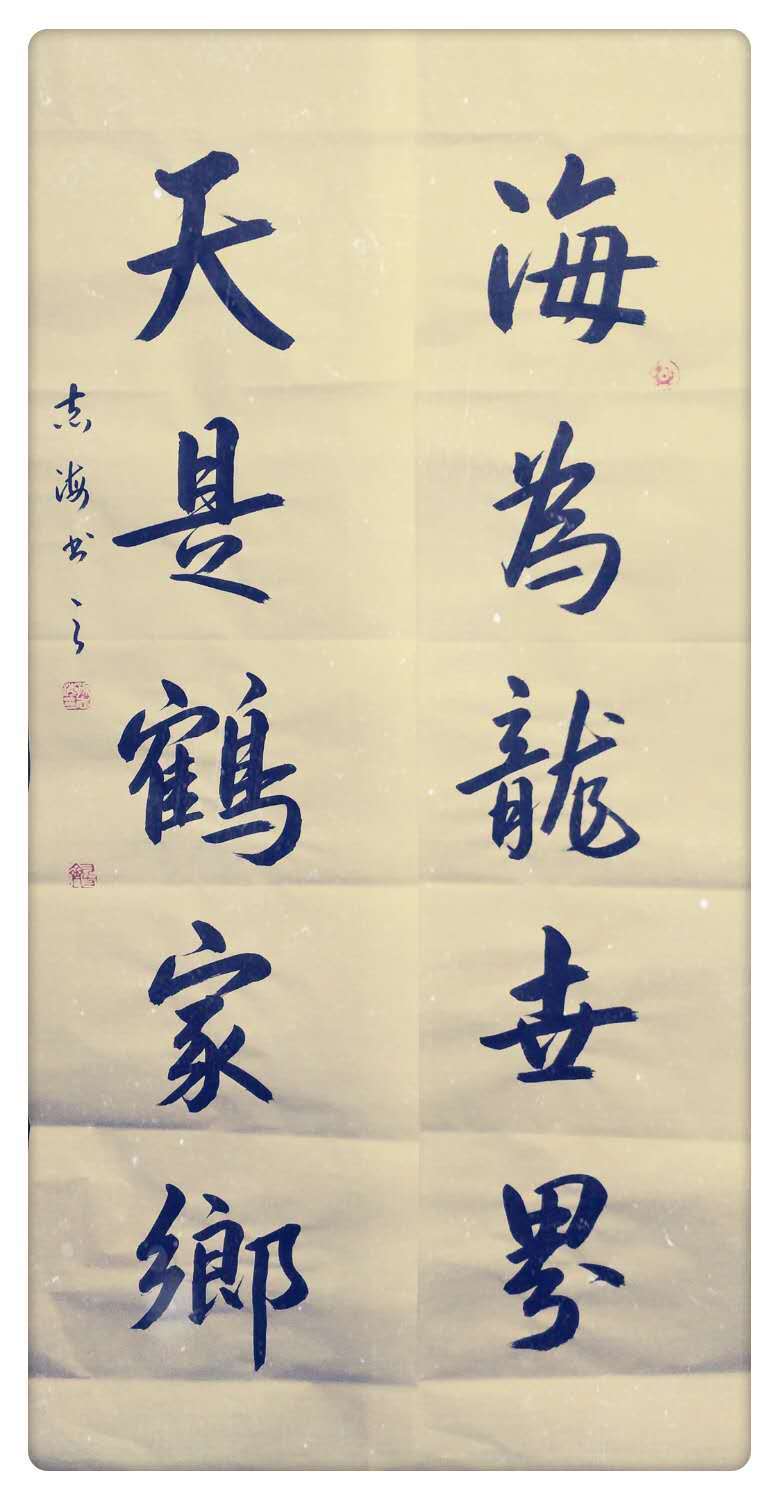 海為龍世界
天是鶴家鄉
志海书之